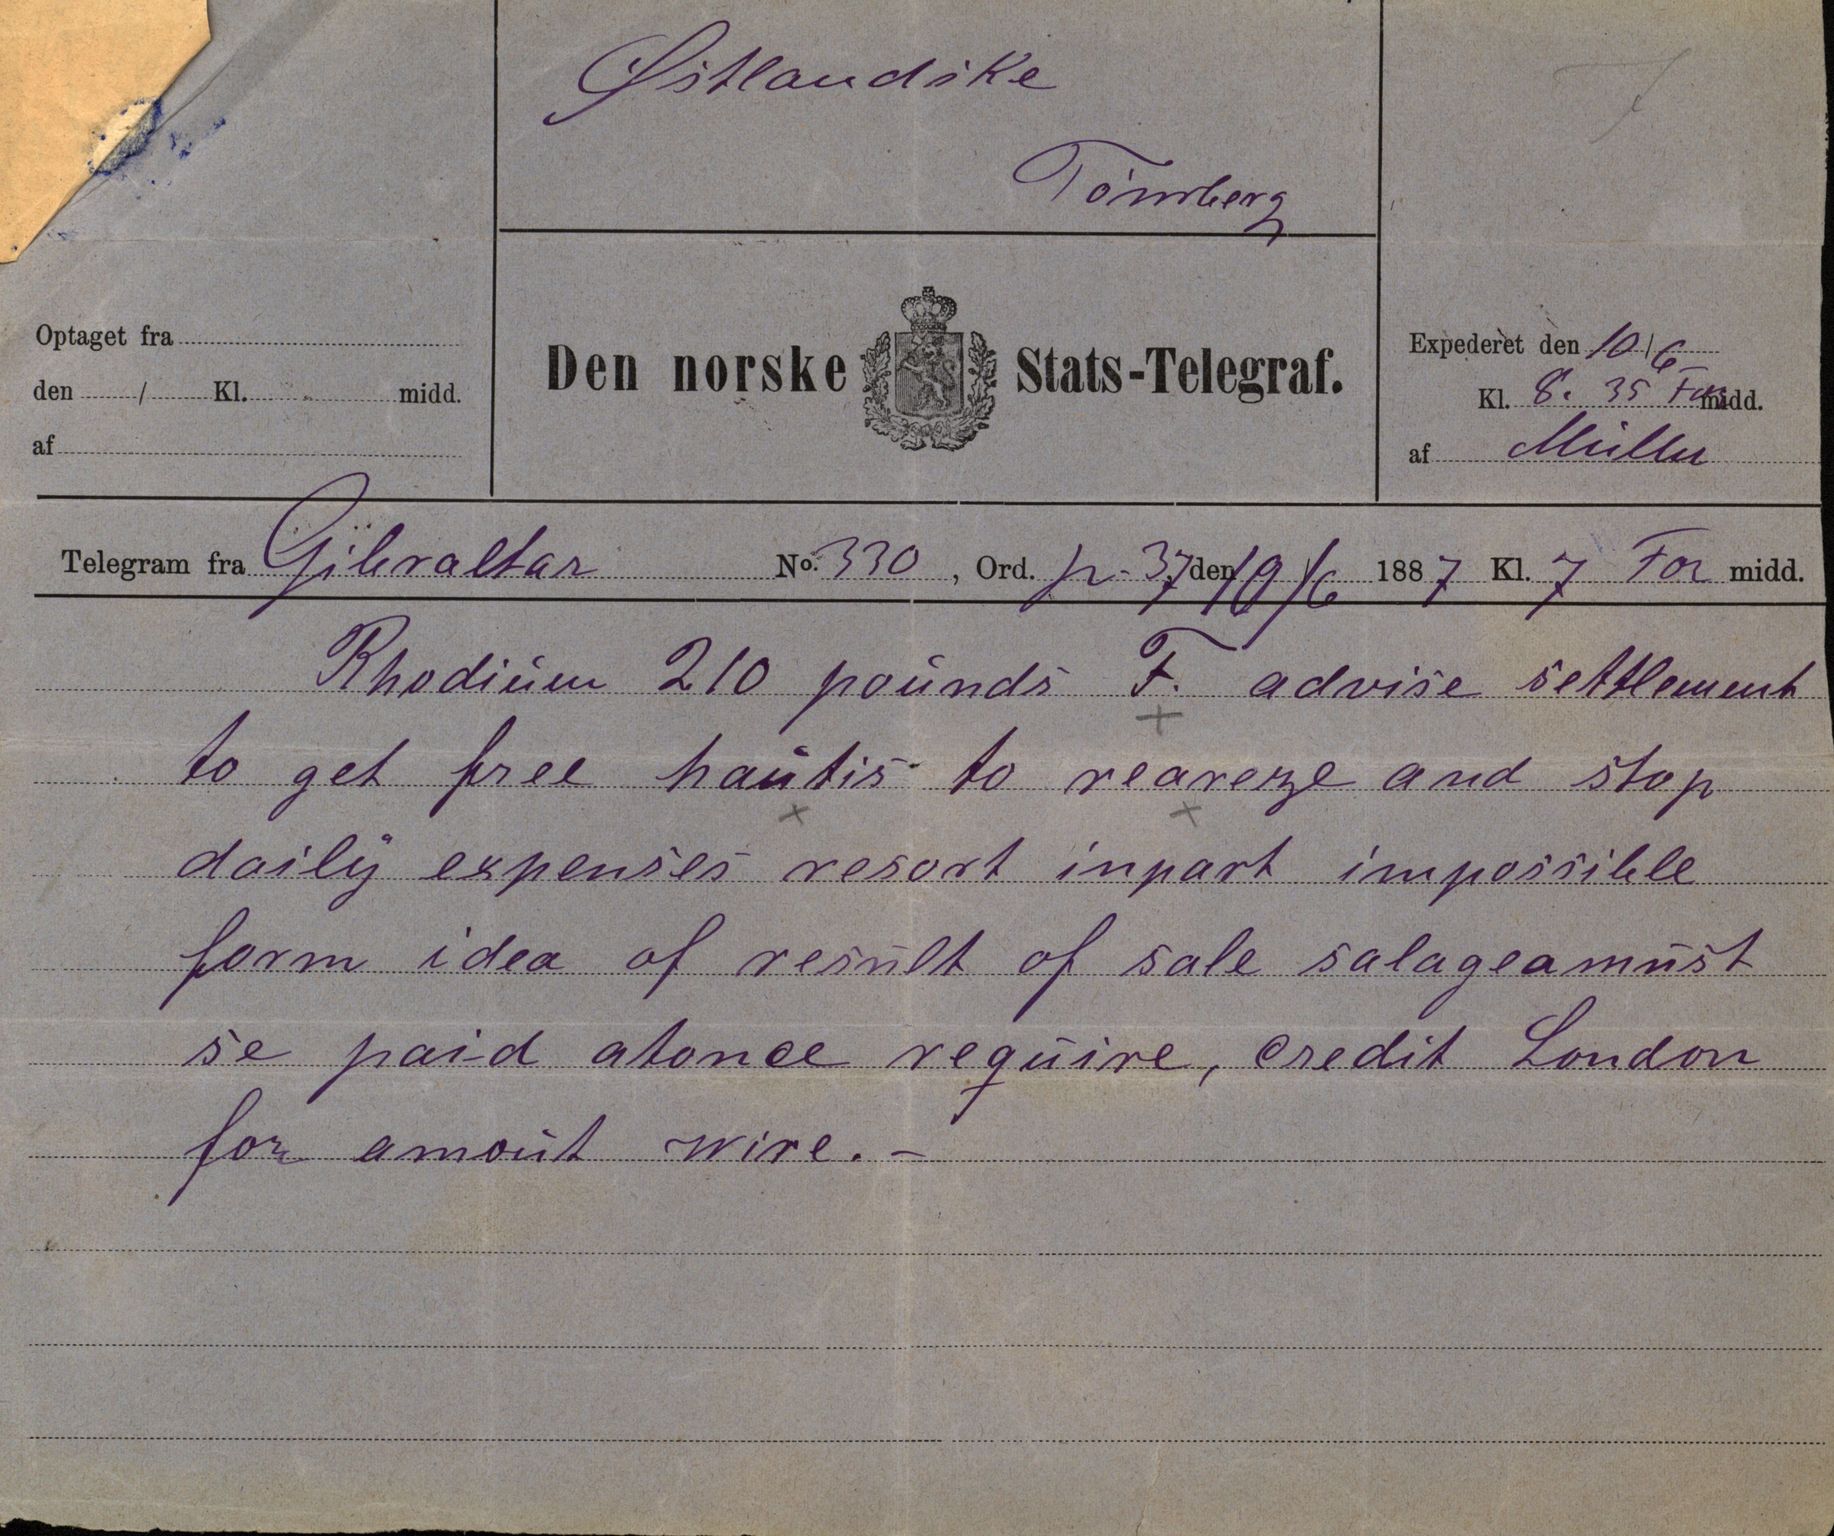 Østlandske
Tönsberg
Optaget fra
den / Kl. midd.
af
Den norske Stats-Telegraf.
Expederet den 10/6
Kl. 8. 35 For midd.
af Müller
Telegram fra Gibraltar No. 330, Ord. p. 37 den 10/6 1887 Kl. 7 For midd.
Rhodium 210 pounds F. advise settlement
to get free hautis to rearerze and stop
daily expenses resort inpart impossible
form idea of result of sale salageamust
se paid atonce require, credit London
for amout wire. –